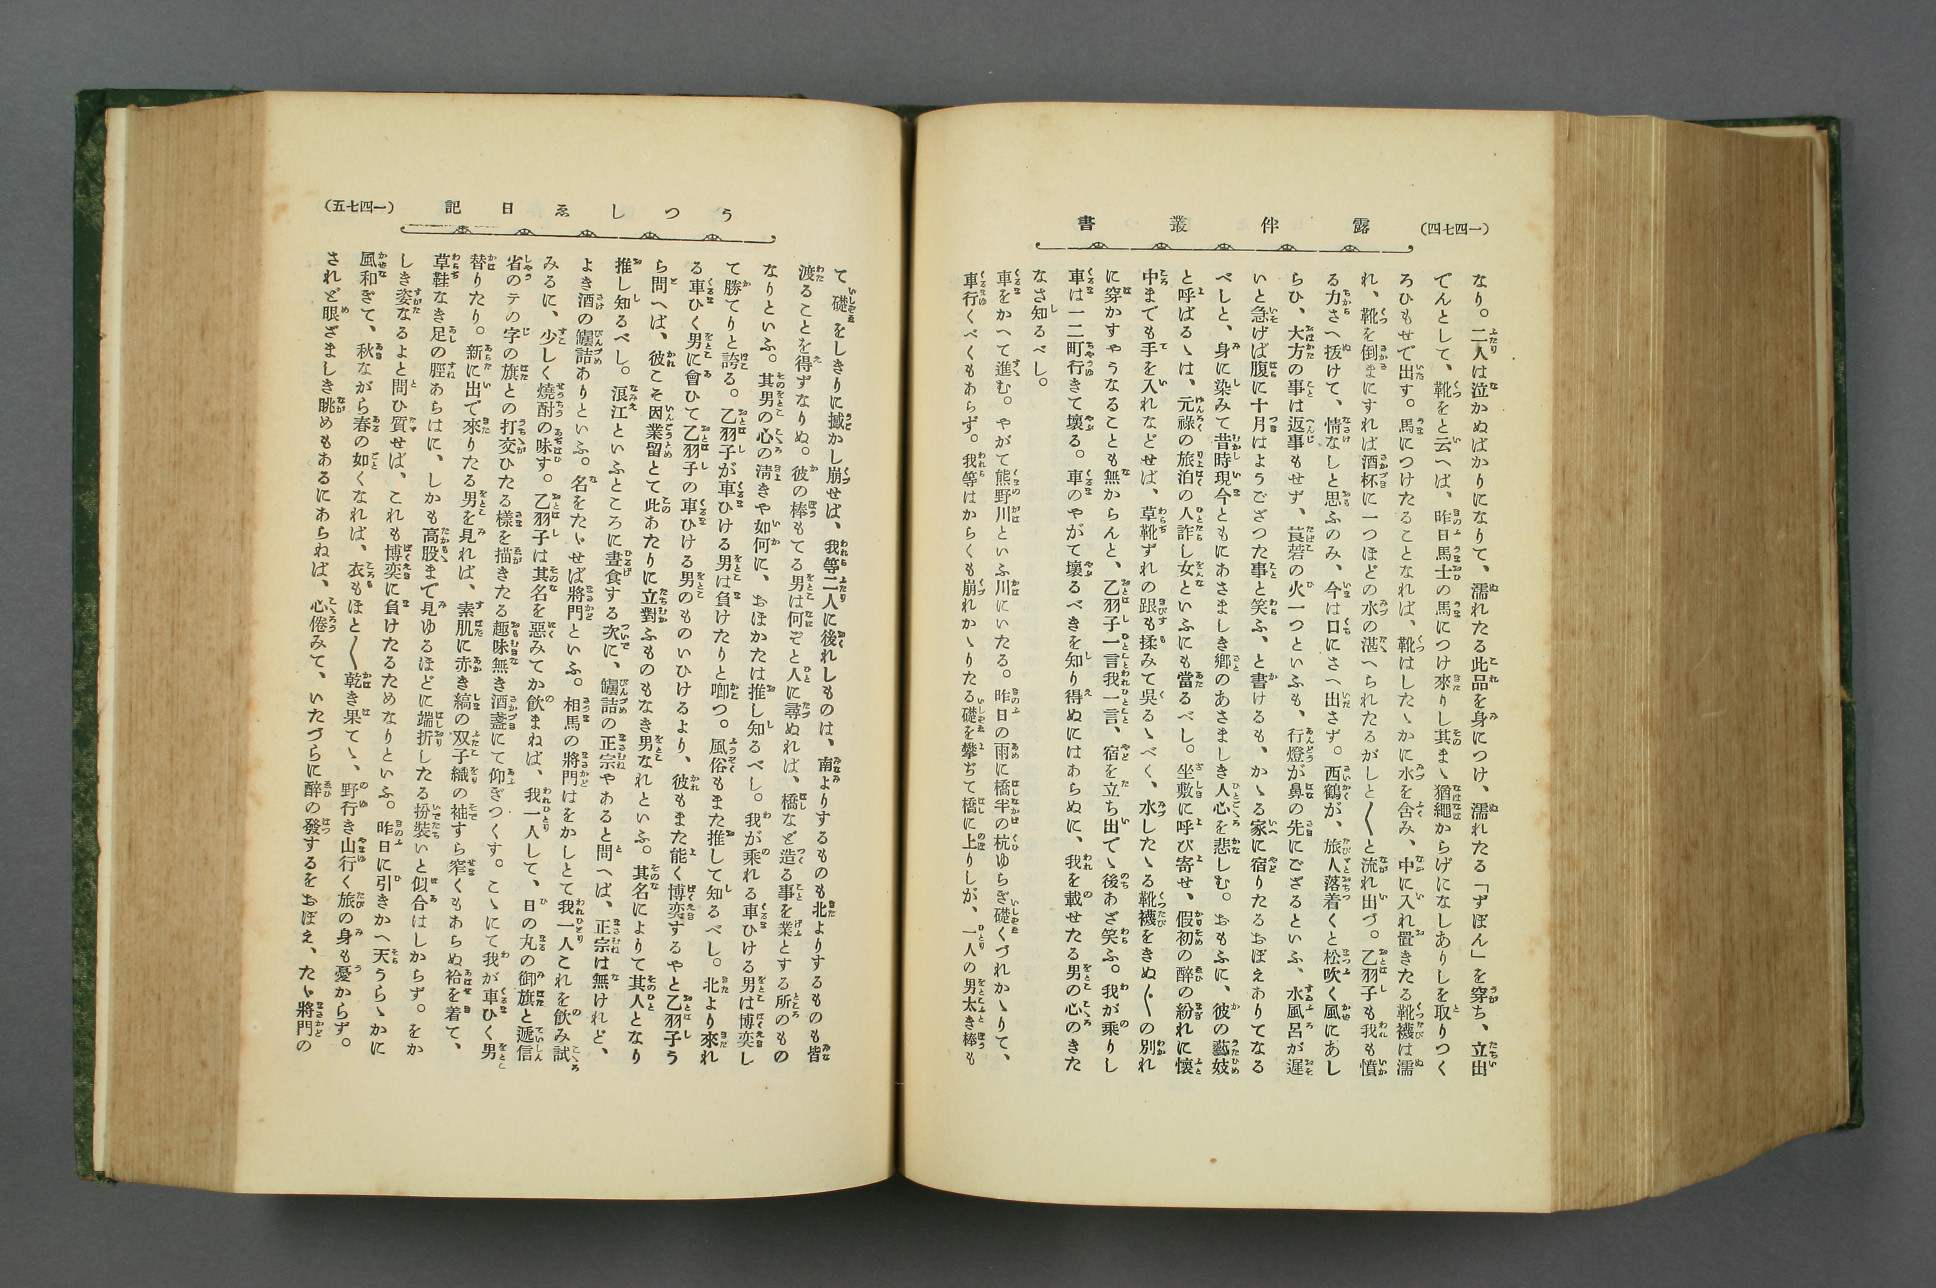 (一四七四)
露伴叢書
なり。二人は泣かぬばかりになりて、濡れたる此品を身につけ、濡れたる「ずぼん」を穿ち、立出
でんとして、靴をと云へば、昨日馬士の馬につけ來りし其まゝ猶繩からげになしありしを取りつく
ろひもせで出す。馬につけたることなれば、靴はしたゝかに水を含み、中に入れ置きたる靴襪は濡
れ、靴を倒まにすれば酒杯に一つほどの水の湛へられたるがしと〳〵と流れ出づ。乙羽子も我も憤
る力さへ拔けて、情なしと思ふのみ、今は口にさへ出さず。西鶴が、旅人落着くと松吹く風にあし
らひ、大方の事は返事もせず、莨菪の火一つといふも、行燈が鼻の先にござるといふ、水風呂が遲
いと急げば腹に十月はようござつた事と笑ふ、と書けるも、かゝる家に宿りたるおぼえありてなる
べしと、身に染みて昔時現今ともにあさましき鄕のあさましき人心を悲しむ。おもふに、彼の藝妓
と呼ばるゝは、元祿の旅泊の人詐し女といふにも當るべし。坐敷に呼び寄せ、假初の醉の紛れに懷
中までも手を入れなどせば、草靴ずれの跟も揉みて吳るゝべく、水したゝる靴襪をきぬ〴〵の別れ
に穿かすやうなることも無からんと、乙羽子一言我一言、宿を立ち出でゝ後あざ笑ふ。我が乘りし
車は一二町行きて壞る。車のやがて壞るべきを知り得ぬにはあらぬに、我を載せたる男の心のきた
なさ知るべし。
車をかへて進む。やがて熊野川といふ川にいたる。昨日の雨に橋半の杭ゆらぎ礎くづれかゝりて、
車行くべくもあらず。我等はからくも崩れかゝりたる礎を攀ぢて橋に上りしが、一人の男太き棒も
うつしゑ日記
(一四七五)
て礎をしきりに撼かし崩せば、我等二人に後れしものは、南よりするものも北よりするものも皆
渡ることを得ずなりぬ。彼の棒もてる男は何ぞと人に尋ぬれば、橋など造る事を業とする所のもの
なりといふ。其男の心の淸きや如何に、おほかたは推し知るべし。我が乘れる車ひける男は博奕し
て勝てりと誇る。乙羽子が車ひける男は負けたりと啣つ。風俗もまた推して知るべし。北より來れ
る車ひく男に會ひて乙羽子の車ひける男のものいひけるより、彼もまた能く博奕するやと乙羽子う
ら問へば、彼こそ因業留とて此あたりに立對ふものもなき男なれといふ。其名によりて其人となり
推し知るべし。浪江といふところに晝食する次に、罎詰の正宗やあると問へば、正宗は無けれど、
よき酒の罎詰ありといふ。名をたゞせば將門といふ。相馬の將門はをかしとて我一人これを飮み試
みるに、少しく燒酎の味す。乙羽子は其名を惡みてか飮まねば、我一人して、日の丸の御旗と遞信
省のテの字の旗との打交ひたる樣を描きたる趣味無き酒盞にて仰ぎつくす。こゝにて我が車ひく男
替りたり。新に出で來りたる男を見れば、素肌に赤き縞の双子織の袖すら窄くもあらぬ袷を着て、
草鞋なき足の脛あらはに、しかも高股まで見ゆるほどに端折したる扮裝いと似合はしからず。をか
しき姿なるよと問ひ質せば、これも博奕に負けたるためなりといふ。昨日に引きかへ天うらゝかに
風和ぎて、秋ながら春の如くなれば、衣もほと〳〵乾き果てゝ、野行き山行く旅の身も憂からず。
されど眼ざましき眺めもあるにあらねば、心倦みて、いたづらに醉の發するをおぼえ、たゞ將門の